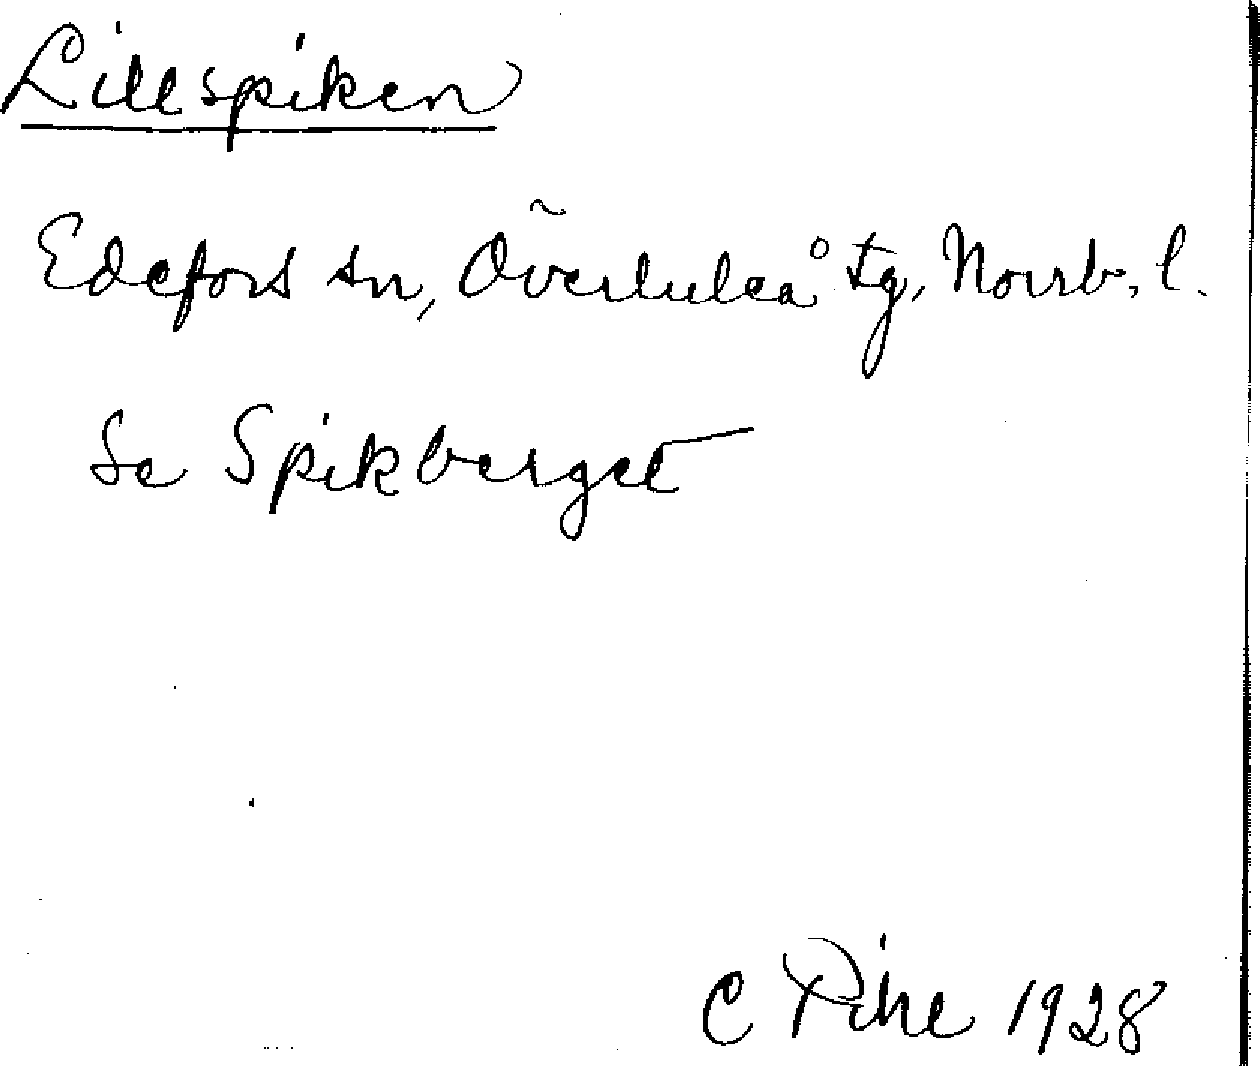 Lillspiken
Edefors sn, Överluleå tg, Norrb. l.
Se Spikberget
C Pihl 1928